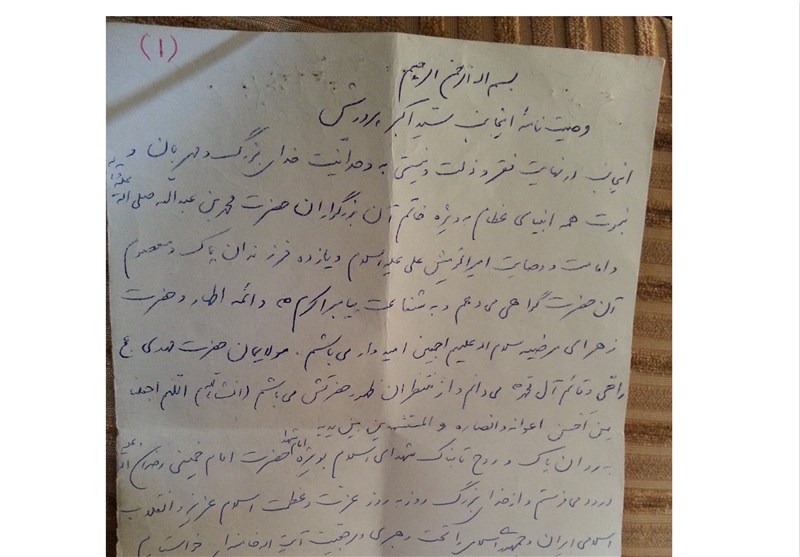 (۱)
بسم الله الرحمن الرحیم
وصیت نامهٔ اینجانب سید اکبر پرورش
اینجانب در نهایت فقر و ذلت و نیستی به وحدانیت خدای بزرگ و مهربان و به
نبوت همه انبیای عظام به ویژه خاتم آن بزرگواران حضرت محمد بن عبدالله صلی الله علیه
و امامت و وصایت امیرالمؤمنین علی علیه السلام و یازده فرزندان پاک و معصوم
آن حضرت گواهی می دهم و به شفاعت پیامبر اکرم ص و ائمه اطهار و حضرت
زهرای مرضیه سلام الله علیهم اجمعین امیدوار می باشم. مولایمان حضرت مهدی عج
را حی و قائم آل محمد می دانم و از منتظران ظهور حضرتش می باشم (انشاءالله) اللهم اجعلنا
من احسن اعوانه و انصاره و المستشهدین بین یدیه
به روان پاک و روح تابناک شهدای اسلام بویژه امام شهدا حضرت امام خمینی رضوان الله علیه
درود می فرستم و از خدای بزرگ روز به روز عزت و عظمت اسلام عزیز و انقلاب
اسلامی ایران و جمهوری اسلامی را تحت رهبری و مرجعیت آیت الله خامنه ای خواستارم